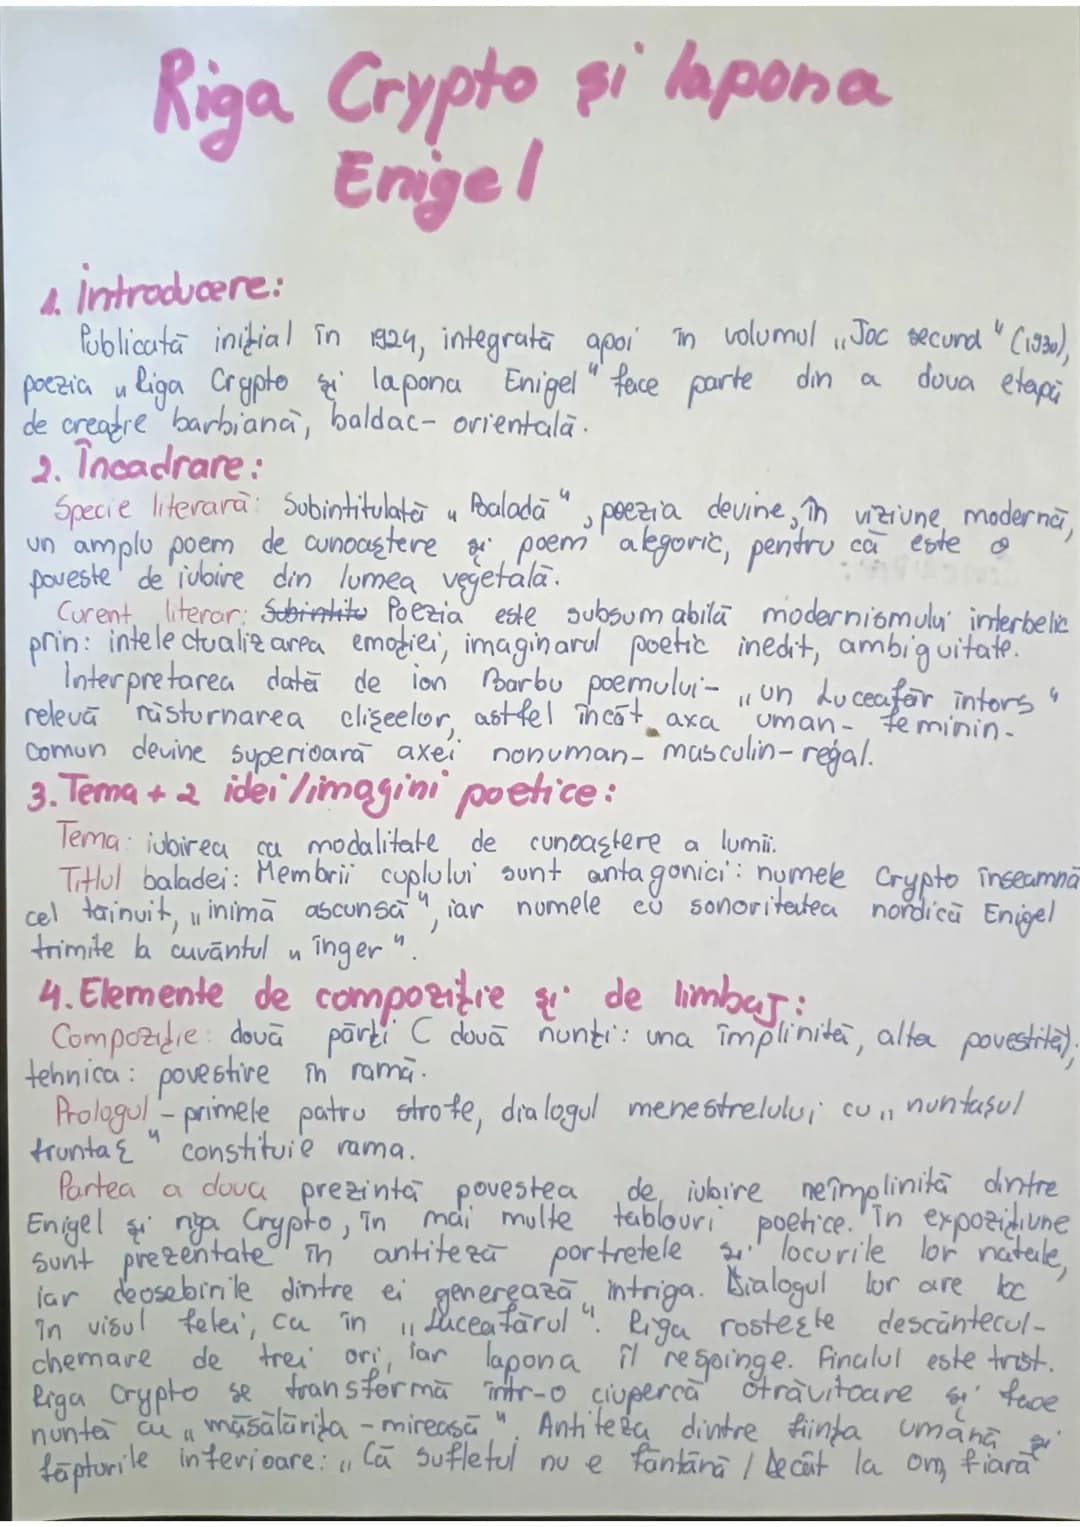 Riga Crypto și lapona
Enigel
1. Introducere:
Publicată inițial în 1924, integrată apoi în volumul „Joc secund" (1930),
poezia „Riga Crypto și lapona Enigel" face parte din a doua etapă
de creație barbiană, baldac-orientală.
2. Încadrare:
Specie literară: Subintitulată „Baladă", poezia devine, în viziune modernă,
un amplu poem de cunoaștere și poem alegoric, pentru că este o
poveste de iubire din lumea vegetală.
Curent literar: Subintitu Poezia este subsumabilă modernismului interbelic
prin: intelectualizarea emoției, imaginarul poetic inedit, ambiguitate.
Interpretarea dată de ion Barbu poemului- „un Luceafăr întors"
relevă răsturnarea clișeelor, astfel încât axa uman- feminin-
comun devine superioară axei nonuman- masculin-regal.
3. Tema + 2 idei/imagini poetice:
Tema: iubirea ca modalitate de cunoaștere a lumii.
Titlul baladei: Membrii cuplului sunt antagonici: numele Crypto înseamnă
cel tăinuit, „inimă ascunsă", iar numele cu sonoritatea nordică Enigel
trimite la cuvântul „înger".
4. Elemente de compoziție și de limbaj:
Compoziție: două părți (două nunți: una împlinită, alta povestită);
tehnica: povestire în ramă.
Prologul - primele patru strofe, dialogul menestrelului cu „nuntașul
fruntaș" constituie rama.
Partea a doua prezintă povestea de iubire neîmplinită dintre
Enigel și riga Crypto, în mai multe tablouri poetice. În expozițiune
sunt prezentate în antiteză portretele și locurile lor natale,
iar deosebirile dintre ei generează intriga. Dialogul lor are loc
în visul fetei, ca în „Luceafărul". Riga rostește descântecul-
chemare de trei ori, iar lapona îl respinge. Finalul este trist.
Riga Crypto se transformă într-o ciupercă otrăvitoare și face
nuntă cu „măsălărița - mireasă". Antiteza dintre ființa umană și
făpturile inferioare: „Că sufletul nu e fântână / Decât la om, fiară